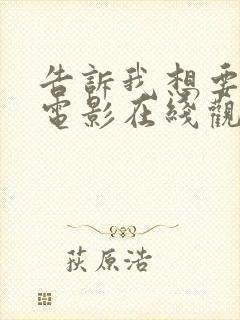 告訴我想要
電影在綫觀
荻原浩